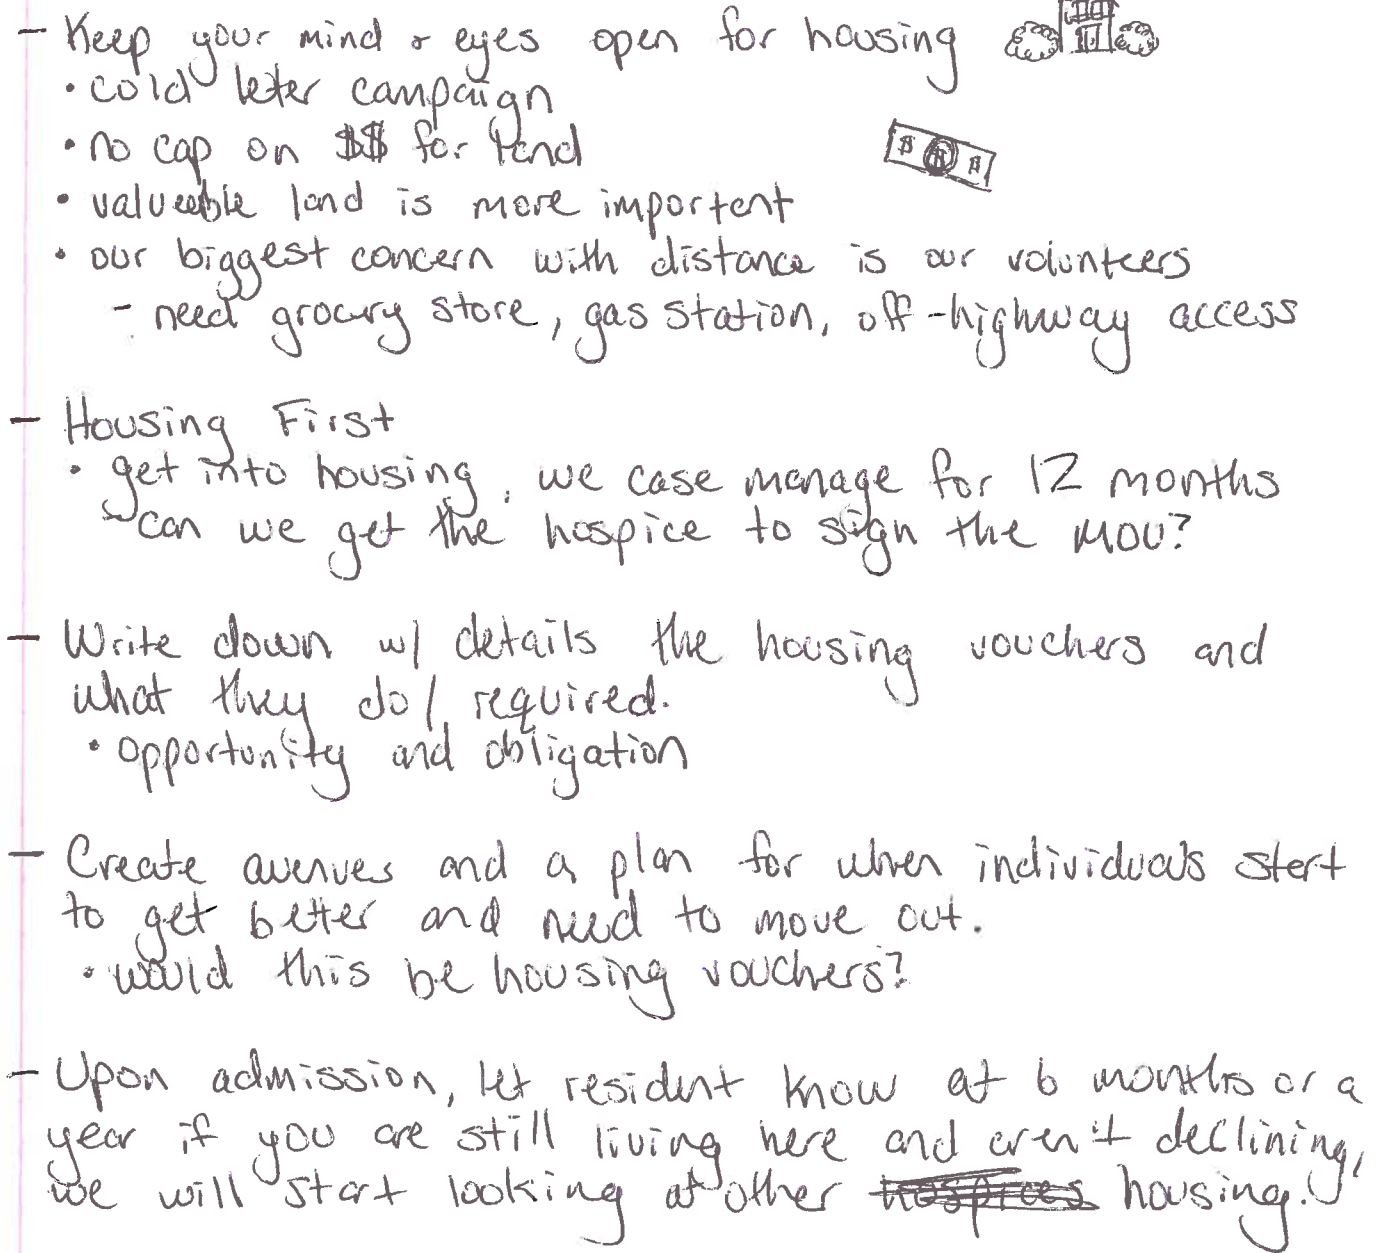 - Keep your mind & eyes open for housing
• cold letter campaign
• no cap on $$ for land
• valueable land is more important
• our biggest concern with distance is our volunteers
- need grocery store, gas station, off-highway access
- Housing First
• get into housing, we case manage for 12 months
- can we get the hospice to sign the MOU?
- Write down w/ details the housing vouchers and
what they do/required.
• opportunity and obligation
- Create avenues and a plan for when individuals start
to get better and need to move out.
• would this be housing vouchers?
- Upon admission, let resident know at 6 months or a
year if you are still living here and aren't declining,
we will start looking at other hospices housing.